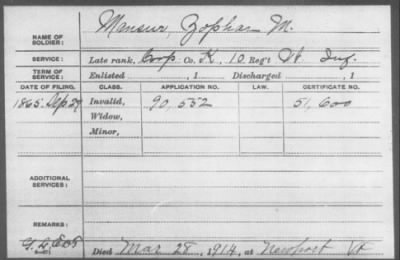 NAME OF SOLDIER: Mansur, Zophar M.
SERVICE: Late rank, Corp Co. K, 10 Reg't Vt Inf.
TERM OF SERVICE: Enlisted , 1 Discharged , 1
DATE OF FILING. CLASS. APPLICATION NO. LAW. CERTIFICATE NO.
1865. Sep 29 Invalid, 90,552 51,600
Widow,
Minor,
ADDITIONAL SERVICES:
REMARKS:
Died Mar 28, 1914, at Newport Vt